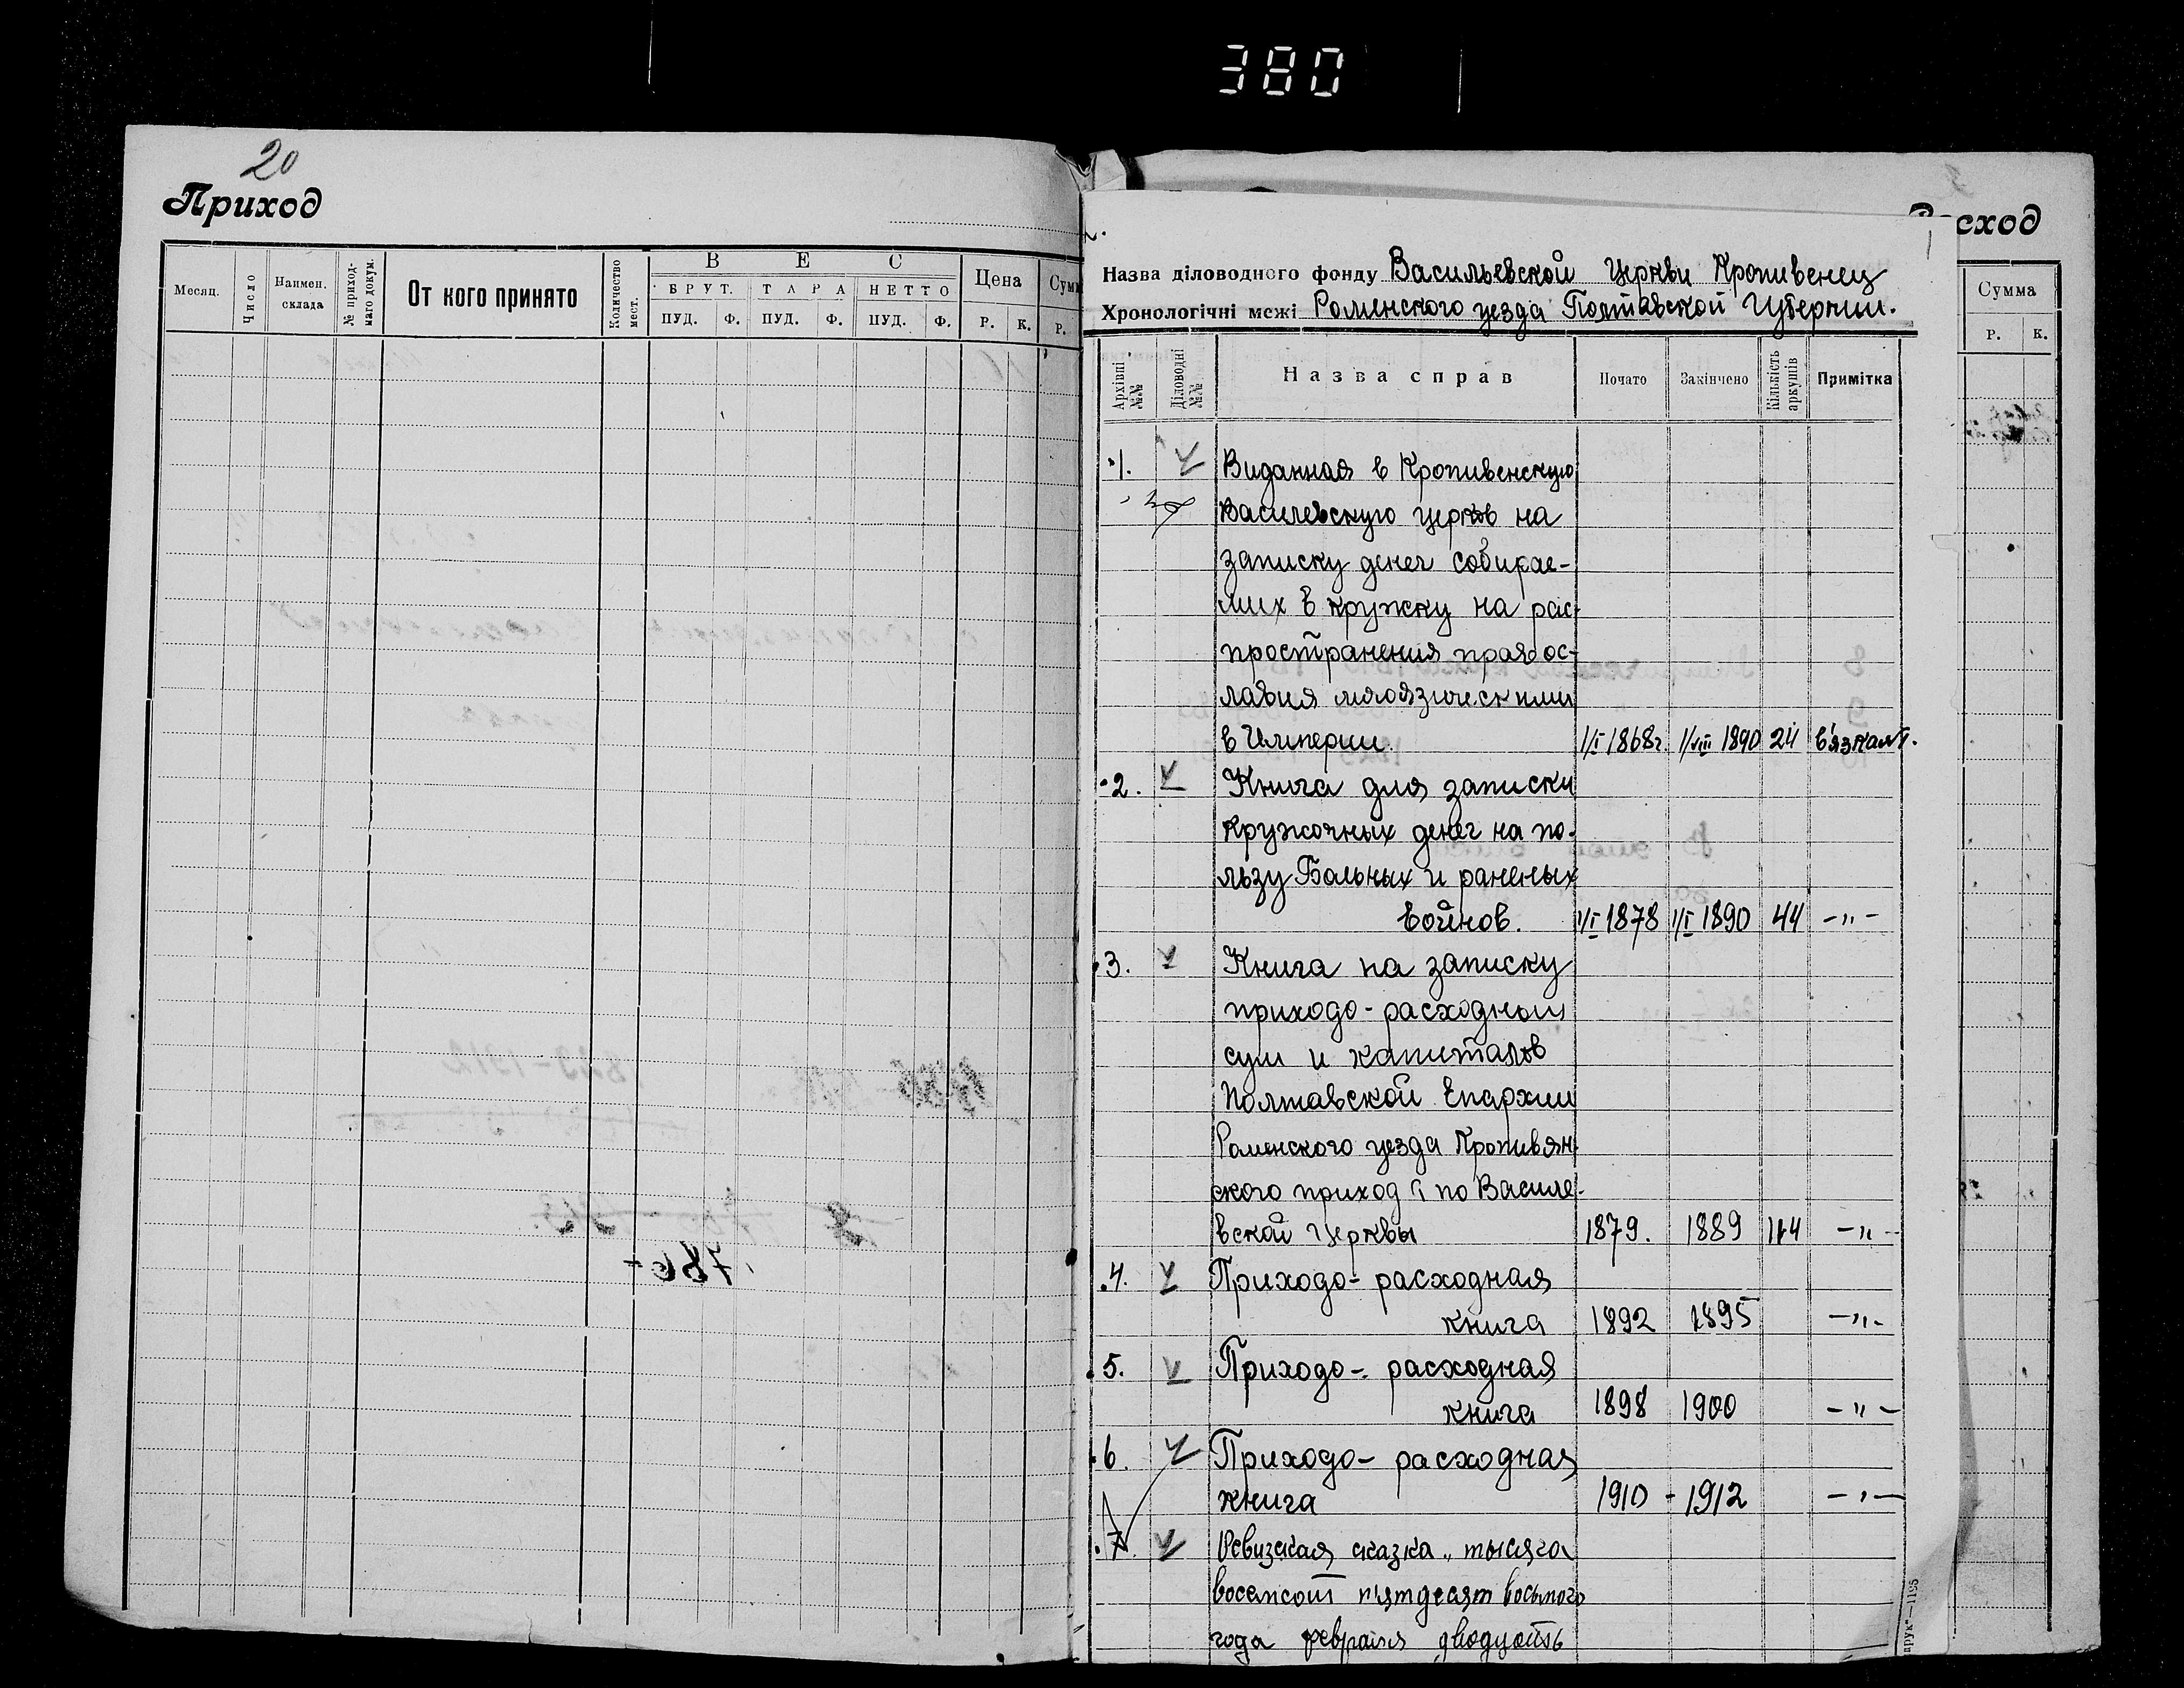 380
20
Приход
Месяц.
Число
Наимен. склада
№ приход-маго докум.
От кого принято
Количество мест.
ВЕС
БРУТ. ТАРА НЕТТО
ПУД. Ф. ПУД. Ф. ПУД. Ф.
Цена
Р. К.
Сумм
Р.
Расход
Сумма
Р. К.
1
Назва діловодного фонду Васильевской Церкви Кропивенец
Хронологічні межі Роменского уезда Полтавской Губернии.
Архівні №№
Діловодні №№
Назва справ
Почато
Закінчено
Кількість аркушів
Примітка
1. Виданная в Кропивенскую
Василевскую церков на
записку денег собирае-
мих в кружку на рас-
пространения правос-
лавия
в Империи. 1/I 1868г. 1/VIII 1890 24 в'язкам.
2. Книга для записки
кружочных денег на по-
льзу Больных и раненых
Войнов. 1/I 1878 1/I 1890 44 -"-
3. Книга на записку
приходо-расходным
сум и капиталов
Полтавской Епархии
Роменского уезда Кропивян-
ского приход по Василе-
вской Церквы 1879. 1889 114 -"-
4. Приходо-расходная
книга 1892 1895 -"-
5. Приходо-расходная
книга 1898 1900 -"-
6. Приходо-расходная
книга 1910 - 1912 -"-
7. Ревизская сказка „тысяча
восемсот пятдесят восьмого
года февраля двадцать
рук"—1195